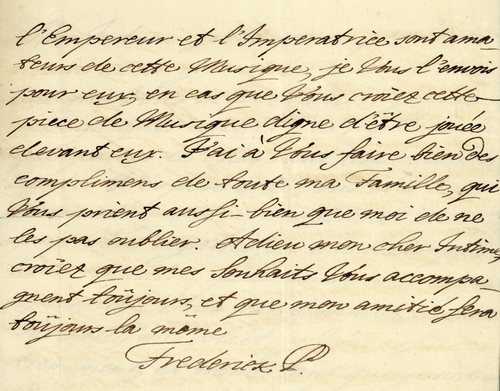 l'Empereur et l'Imperatrice sont ama
teurs de cette Musique, je Vous l'envois
pour eux, en cas que Vous croiez cette
piece de Musique digne d'être jouée
devant eux. J'ai à Vous faire bien des
complimens de toute ma Famille, qui
Vous prient aussi-bien que moi de ne
les pas oublier. Adieu mon cher Intime,
croiez que mes Souhaits Vous accompa
gnent toûjours, et que mon amitié sera
toûjours la même
Frederick P.